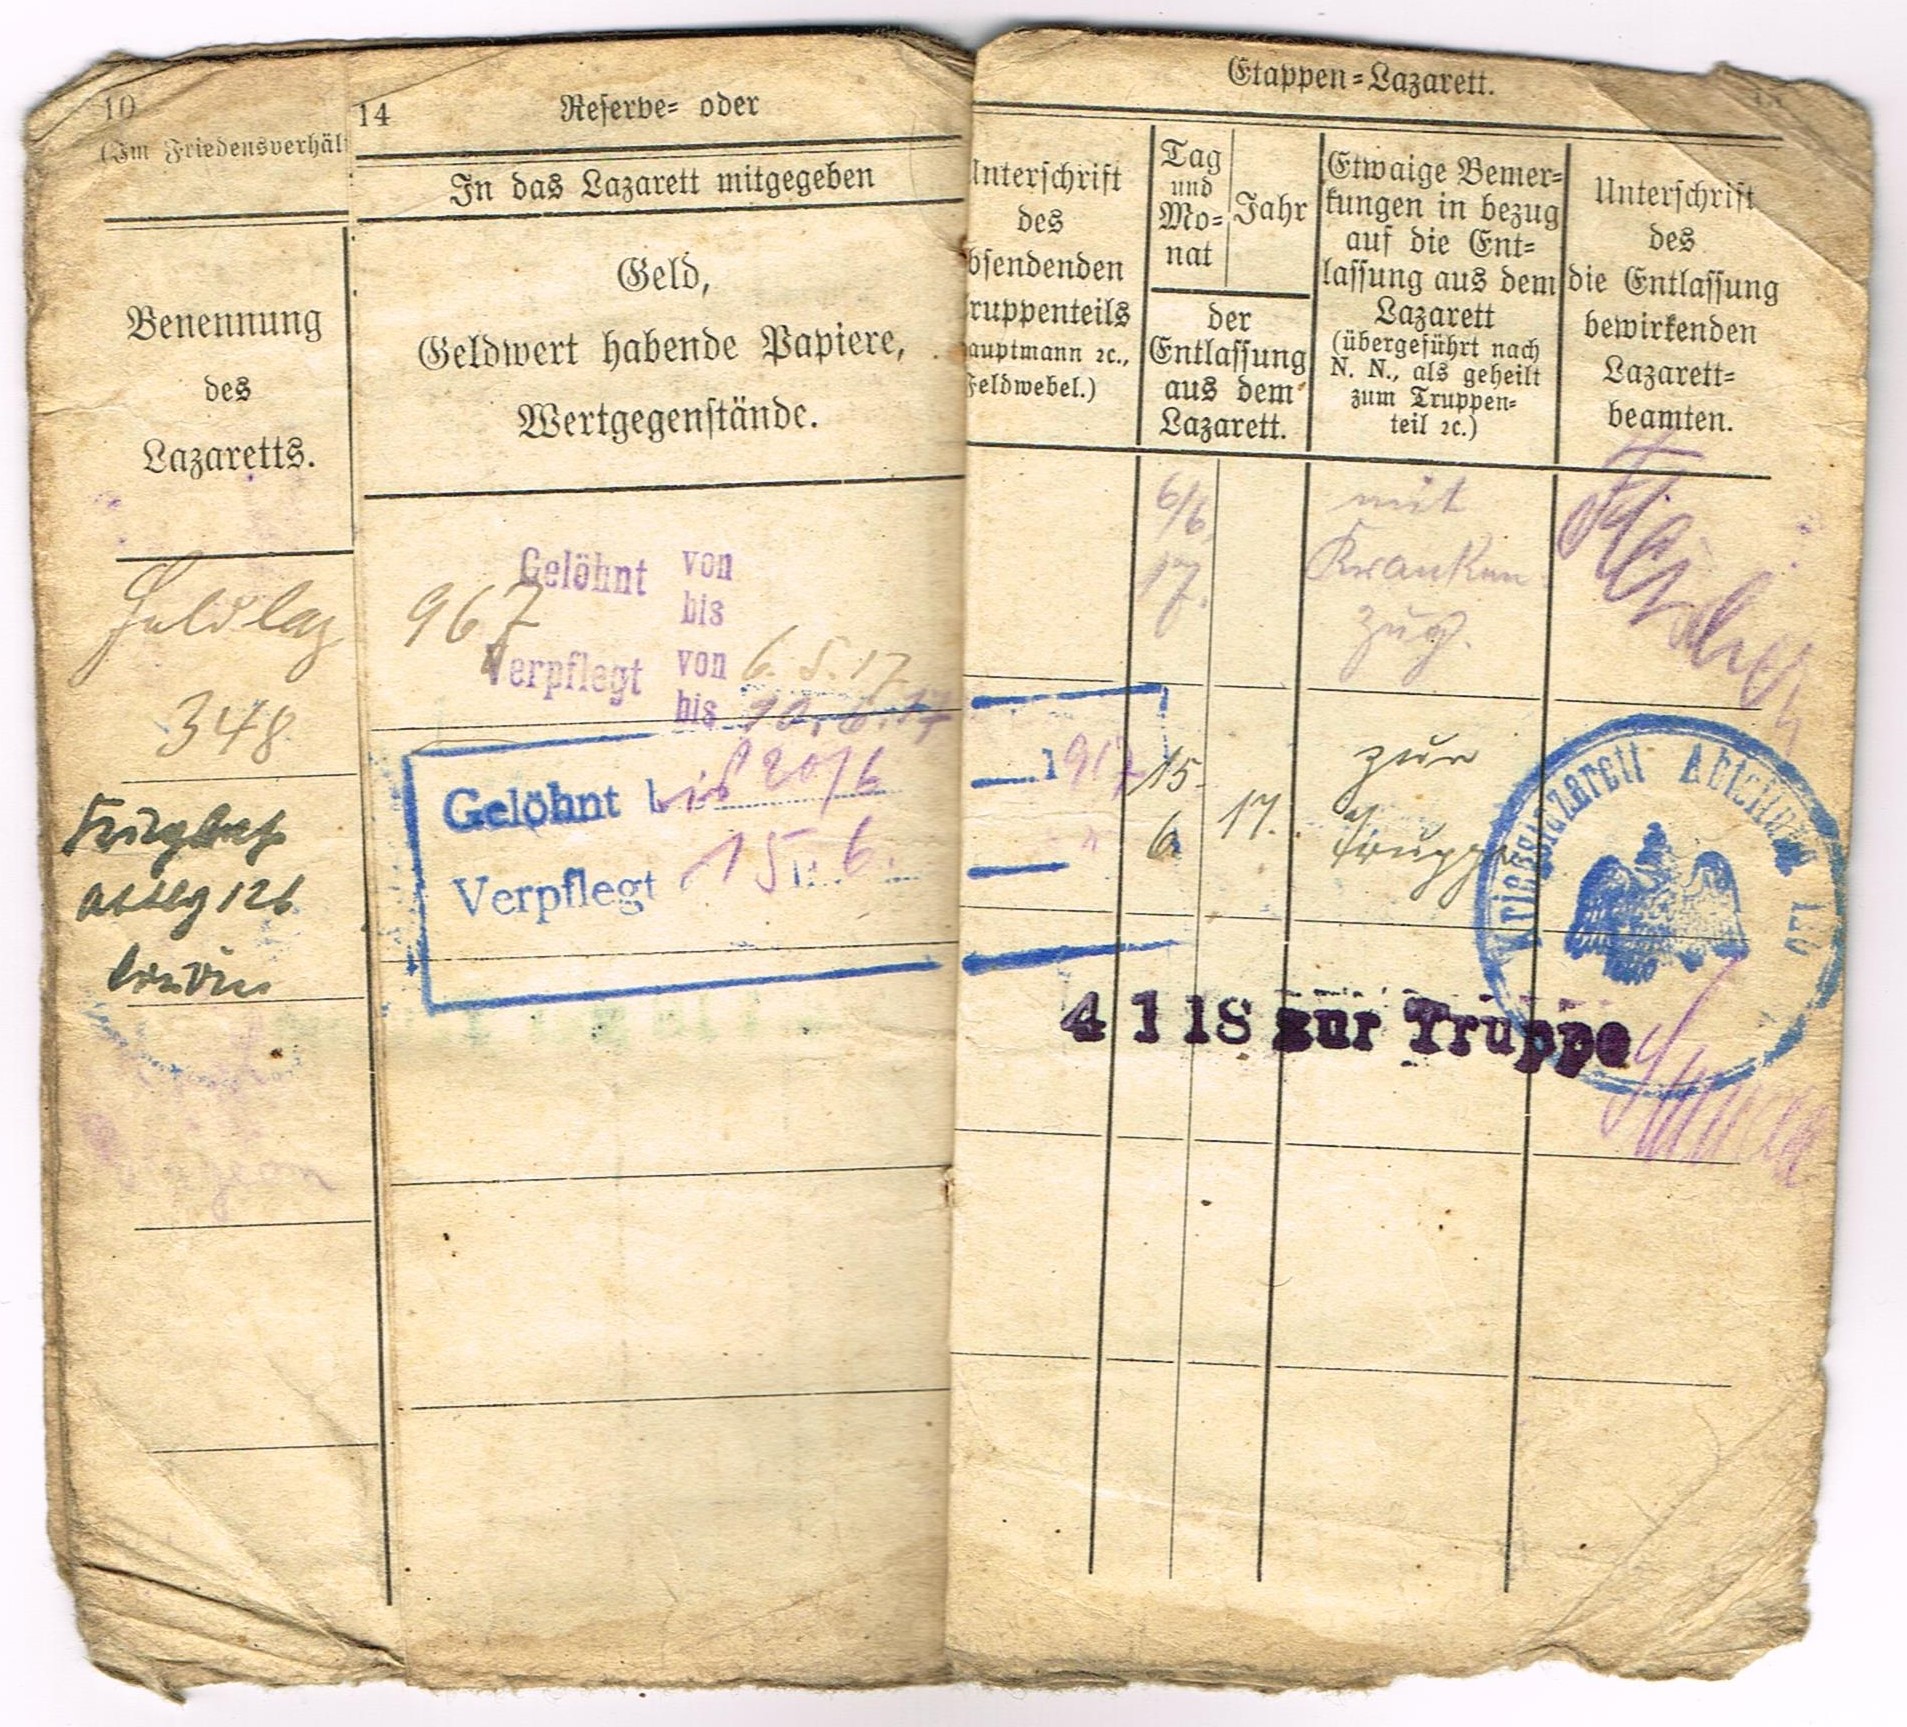 10
(Im Friedensverhäl
Benennung
des
Lazaretts.
Feldlaz
348
Kriegslaz
abtlg 126
14
Reserve= oder
In das Lazarett mitgegeben
Geld,
Geldwert habende Papiere,
Wertgegenstände.
967
Gelöhnt von
bis
Verpflegt von 6. 5. 17
bis 10. 6. 17
Gelöhnt bis 20/6 1917
Verpflegt 15. 6. "
Etappen=Lazarett.
Unterschrift
des
bsendenden
ruppenteils
auptmann ꝛc.,
Feldwebel.)
Tag
und
Mo=
nat
Jahr
der
Entlassung
aus dem
Lazarett.
Etwaige Bemer=
kungen in bezug
auf die Ent=
lassung aus dem
Lazarett
(übergeführt nach
N. N., als geheilt
zum Truppen=
teil ꝛc.)
Unterschrift
des
die Entlassung
bewirkenden
Lazarett=
beamten.
6/6.
17.
mit
Kranken
zug.
15.
6.
17.
zur
Truppe
Kriegslazarett Abteilung
4 1 18 zur Truppe